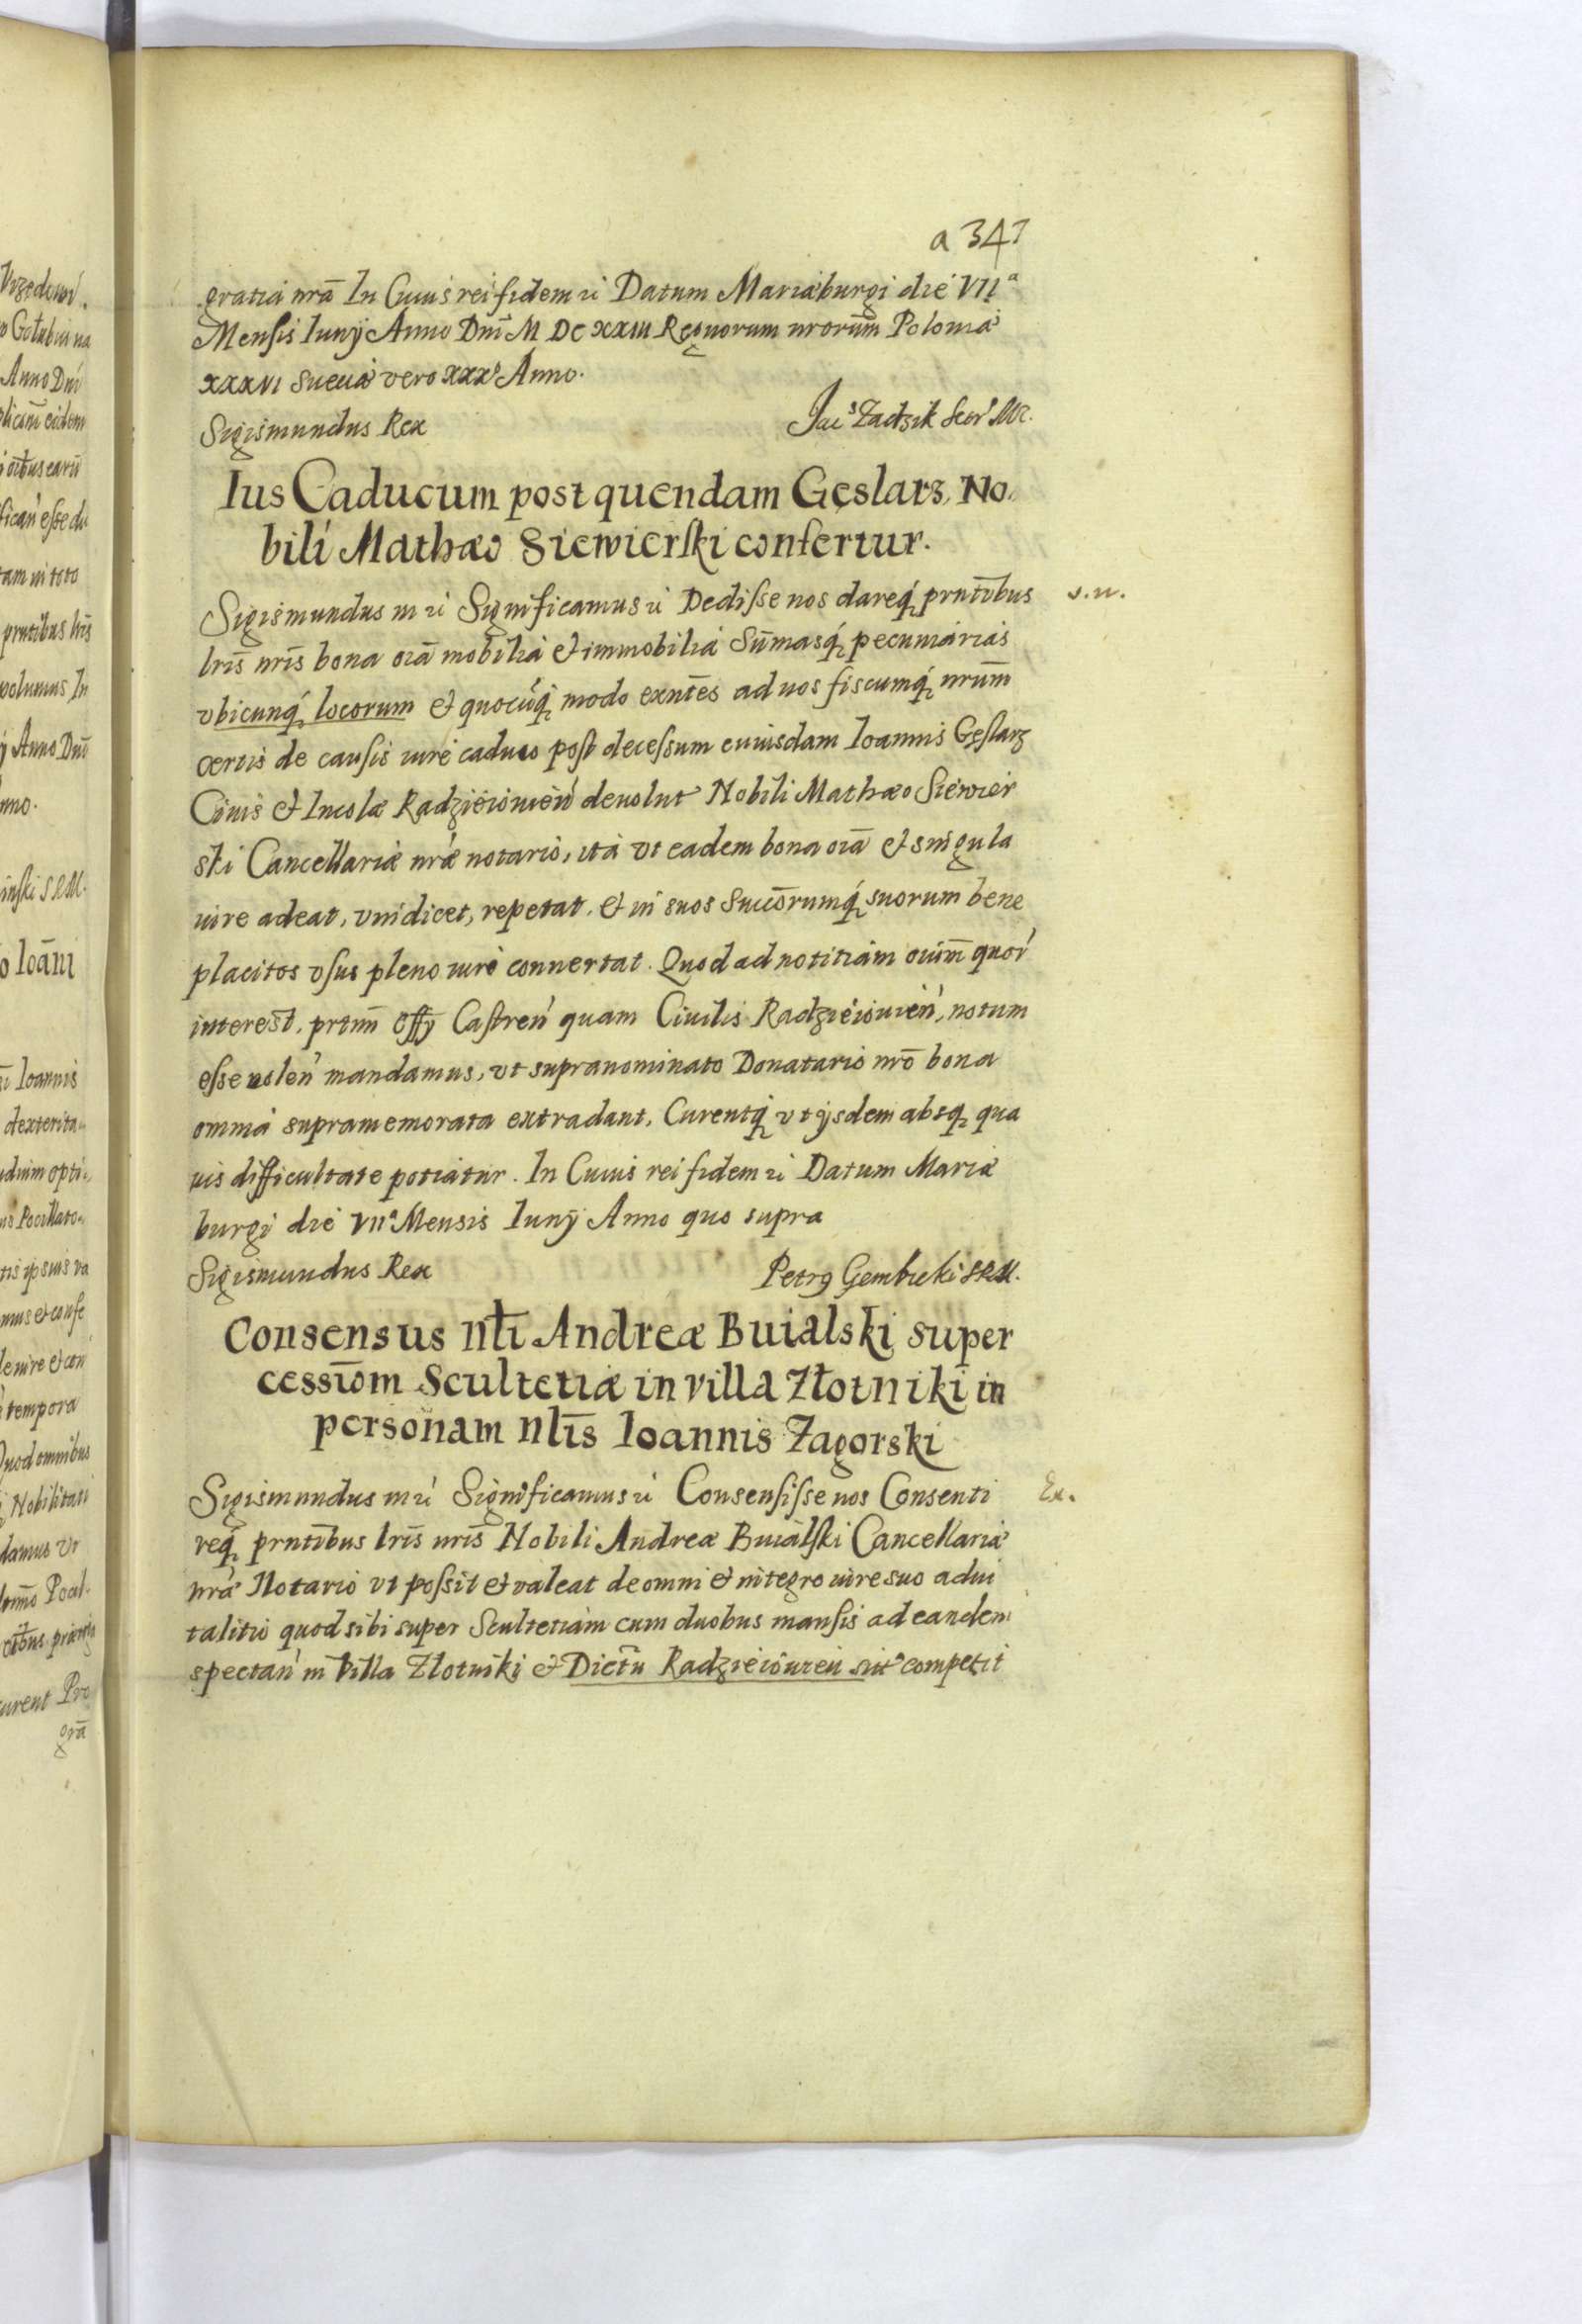 a 347
gratia nrā In Cuius rei fidem Datum Mariæburgi die VIIª
Mensis Iunÿ Anno Dnī M DC XXIII Regnorum nrorum̄ Poloniæ
XXXVI Sueciæ vero XXXº Anno.
Sigismundus Rex Jac⁹ Zadzik
Ius Caducum post quendam Gęslarz, No,
bili Mathæo Siewierſki confertur.
Sigismundus III Significamus Dediſse nos dareq́; prntībus s. n.
lrīs nrīs bona oīa mobilia et immobilia Sum̄asq́; pecuniarias
vbicunq́; locorum et quocūq́; modo exntēs ad nos fiscumq́; nrum̄
certis de cauſis iure caduco poſt deceſsum cuiusdam Ioannis Gęſlarz
Ciuis et Incolæ Radzieiouień deuolut Nobili Mathæo Siewier
ski Cancellariæ nræ notario, ita vt eadem bona oīa et singula
iure adeat, vindicet, repetat, et in suos Succōrumq́; suorum bene
placitos vſus pleno iure conuertat. Quod ad notitiam oium̄ quoŕ
interest, prtim̄ Offÿ Caſtreń quam Ciuilis Radzieiouień, notum
eſse uoleń mandamus, vt supranominato Donatario nrō bona
omnia supramemorata extradant, Curentq́; vt ÿsdem absq; qua
uis difficultate potiatur. In Cuius rei fidem Datum Mariæ
burgi die VIIª Mensis Iunÿ Anno quo supra
Sigismundus Rex Petrꝰ Gembicki SRM.
Consensus Nlī Andreæ Buialski super
cessiōm Scultetiæ in villa Złotniki in
personam Nlīs Ioannis Zagorski
Sigismundus III Significamus Conſenſiſse nos Consenti Ex.
req́; prntībus lrīs nrīs Nobili Andreæ Buialſki Cancellariæ
nræ Notario vt poſsit et valeat de omni et integro iure suo adui
talitio quod sibi super Scultetiam cum duobus manſis ad eandem
spectań in Villa Złotniki et Radzieiouień competit